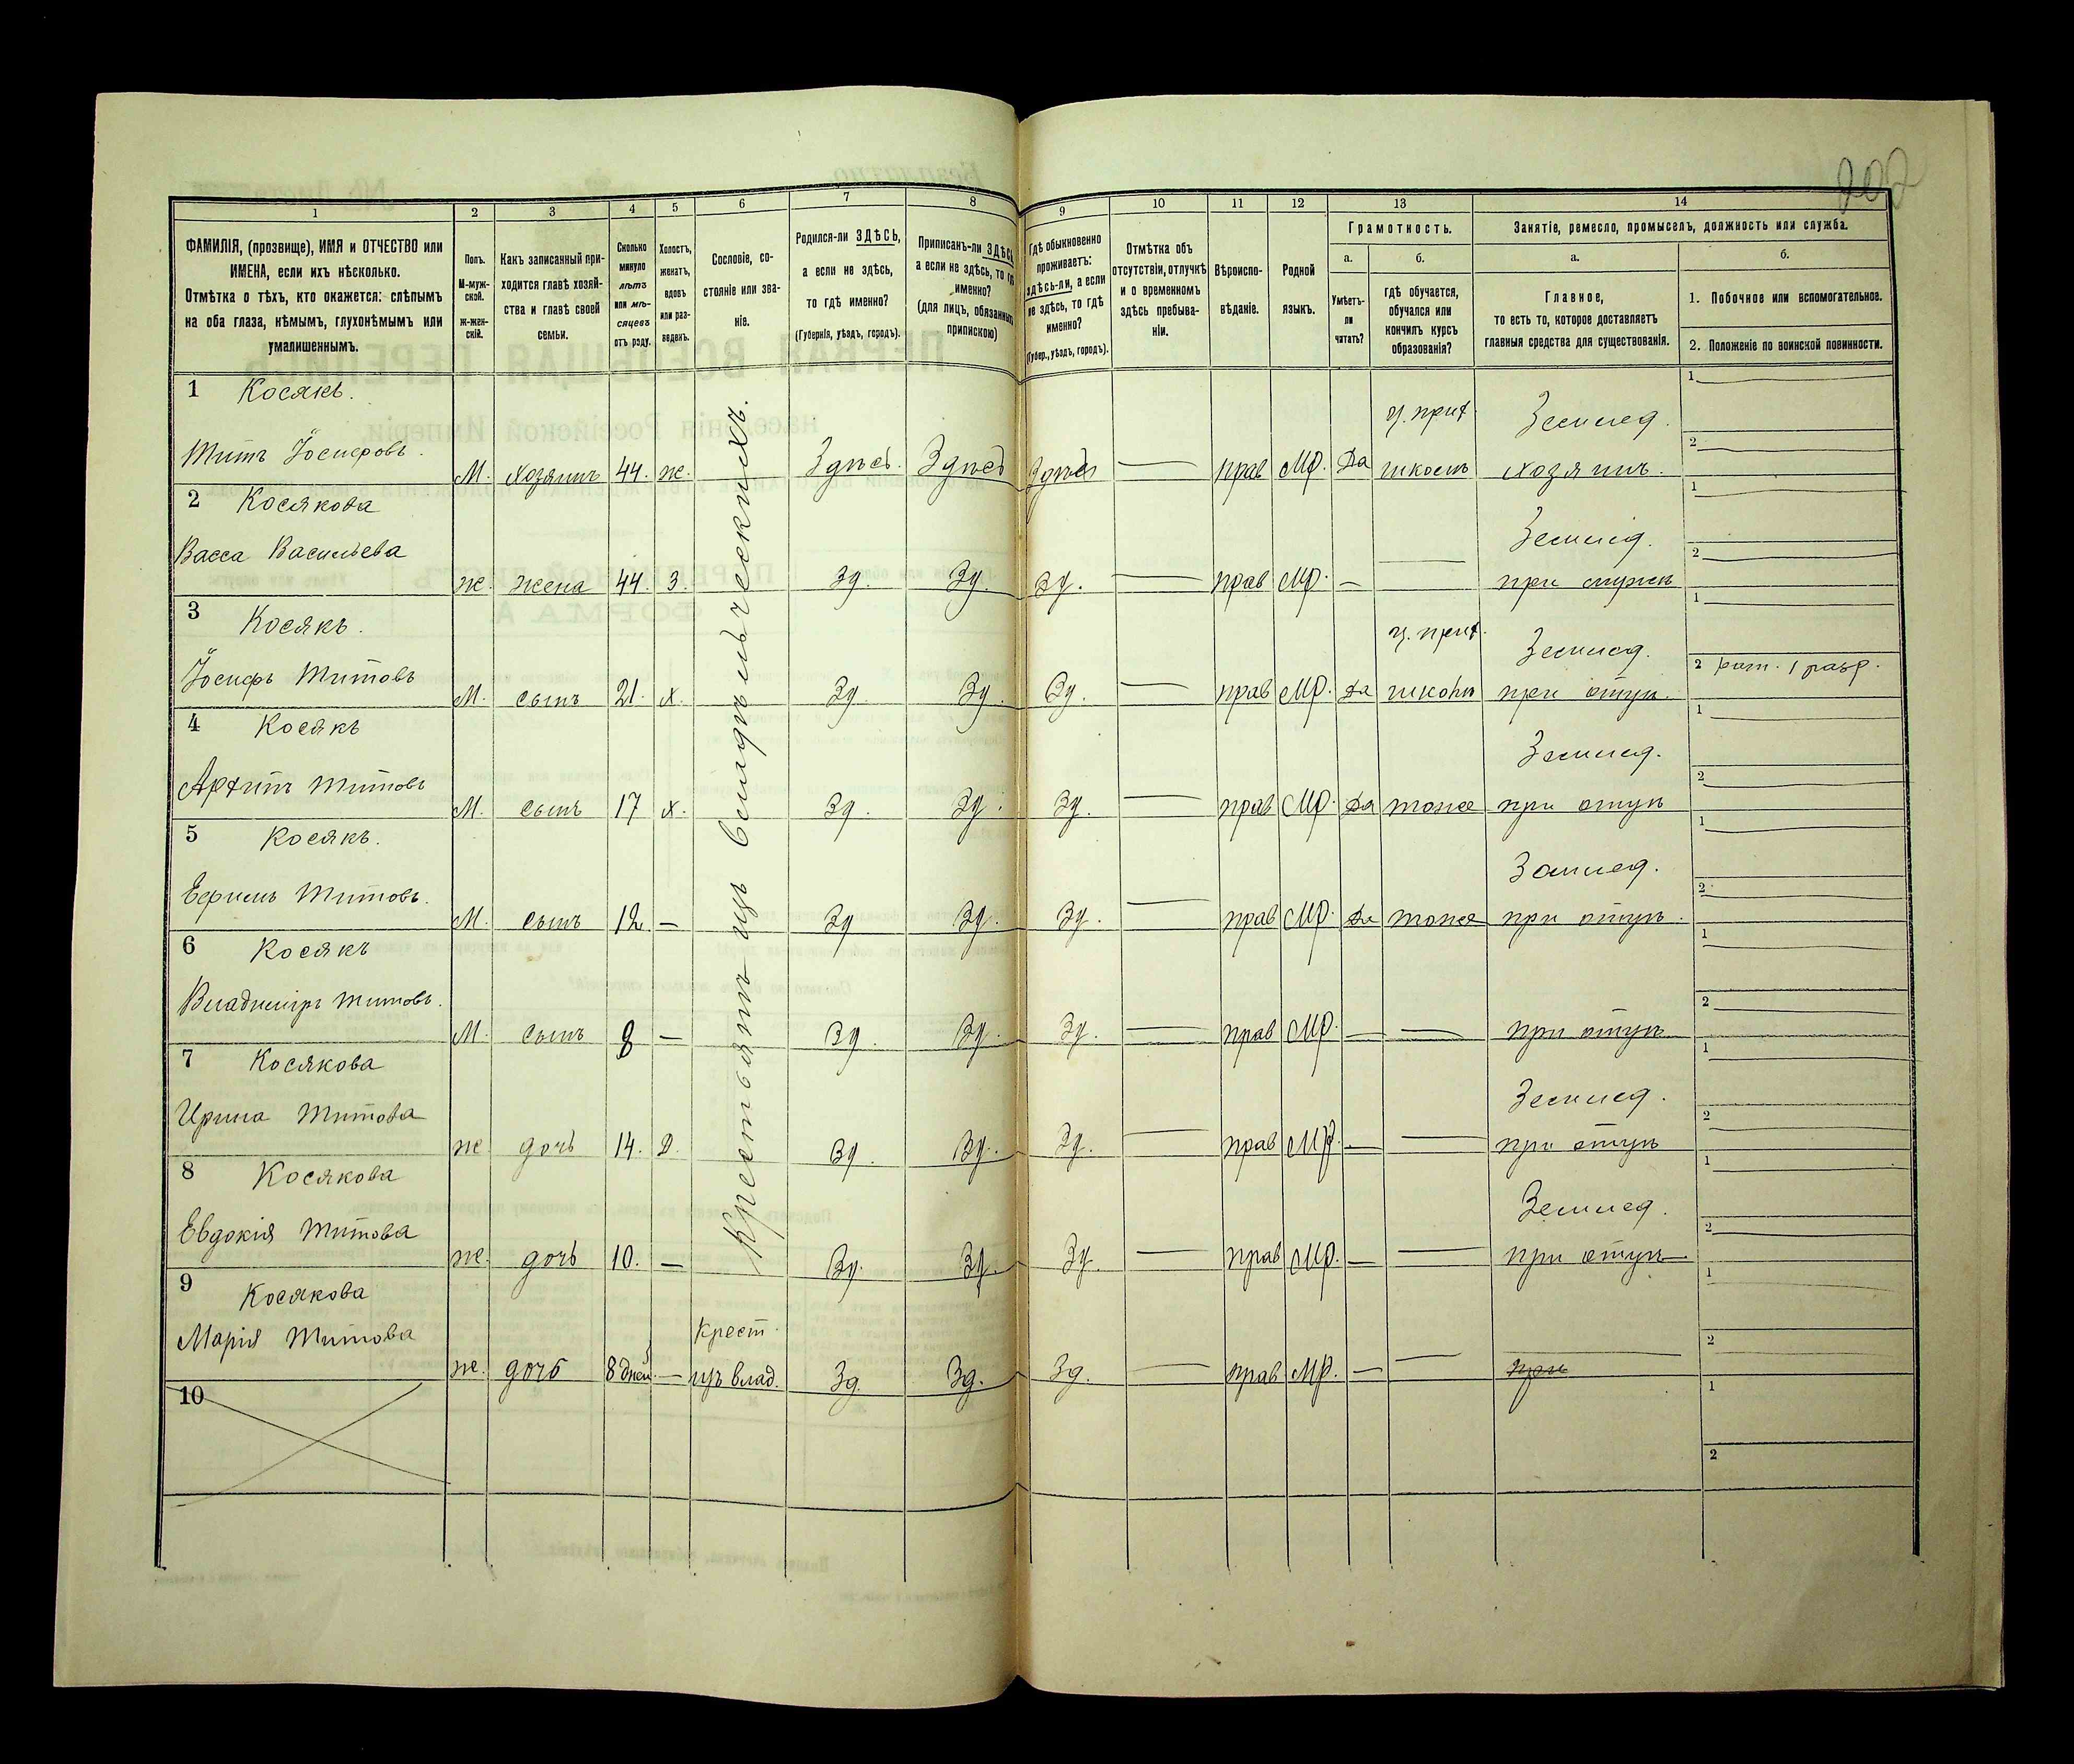 202
1 2 3 4 5 6 7 8 9 10 11 12 13 14
ФАМИЛІЯ, (прозвище), ИМЯ и ОТЧЕСТВО или
ИМЕНА, если ихъ нѣсколько.
Отмѣтка о тѣхъ, кто окажется: слѣпымъ
на оба глаза, нѣмымъ, глухонѣмымъ или
умалишеннымъ.
Полъ.
М-муж-
ской.
ж-жен-
скій.
Какъ записанный при-
ходится главѣ хозяй-
ства и главѣ своей
семьи.
Сколько
минуло
лѣтъ
или мѣ-
сяцевъ
отъ роду.
Холостъ,
женатъ,
вдовъ
или раз-
веденъ.
Сословіе, со-
стояніе или зва-
ніе.
Родился-ли ЗДѢСЬ,
а если не здѣсь,
то гдѣ именно?
(Губернія, уѣздъ, городъ).
Приписанъ-ли ЗДѢСЬ,
а если не здѣсь, то гдѣ
именно?
(для лицъ, обязанныхъ
припискою)
Гдѣ обыкновенно
проживаетъ:
здѣсь-ли, а если
не здѣсь, то гдѣ
именно?
(Губер., уѣздъ, городъ).
Отмѣтка объ
отсутствіи, отлучкѣ
и о временномъ
здѣсь пребыва-
ніи.
Вѣроиспо-
вѣданіе.
Родной
языкъ.
Грамотность.
а.
Умѣетъ-
ли
читать?
б.
гдѣ обучается,
обучался или
кончилъ курсъ
образованія?
Занятіе, ремесло, промыселъ, должность или служба.
а.
Главное,
то есть то, которое доставляетъ
главныя средства для существованія.
б.
1. Побочное или вспомогательное.
2. Положеніе по воинской повинности.
Крестьянъ изъ владѣльческихъ.
1 Косякъ. Землед. 1
Титъ Іосифовъ. М. хозяинъ 44. ж. Здѣсь. Здѣсь Здѣсь — прав Мр. Да школѣ хозяинъ. 2
2 Косякова Землед. 1
Васса Васильева ж. жена 44. З. Зд. Зд. Зд. — прав Мр. — — при мужѣ 2
3 Косякъ. Землед. 1
Іосифъ Титовъ М. сынъ 21. х. Зд. Зд. Зд. — прав Мр. Да школѣ при отцѣ. 2 рат. 1 разр.
4 Косякъ Землед. 1
Архипъ Титовъ М. сынъ 17 х. Зд. Зд. Зд. — прав Мр. Да тоже при отцѣ 2
5 Косякъ. Землед. 1
Ефимъ Титовъ. М. сынъ 12 — Зд Зд. Зд. — прав Мр. Да тоже при отцѣ. 2
6 Косякъ 1
Владиміръ Титовъ. М. сынъ 8 — Зд. Зд. Зд. — прав Мр. — — при отцѣ 2
7 Косякова Землед. 1
Ирина Титова ж дочь 14. Д. Зд. Зд. Зд. — прав Мр. — — при отцѣ 2
8 Косякова Землед. 1
Евдокія Титова ж. дочь 10. — Зд. Зд. Зд. — прав Мр. — — при отцѣ 2
9 Косякова Крест. 1
Марія Титова ж. дочь 8 дней — изъ влад. Зд. Зд. Зд. — прав Мр. — — при 2
10 1
2